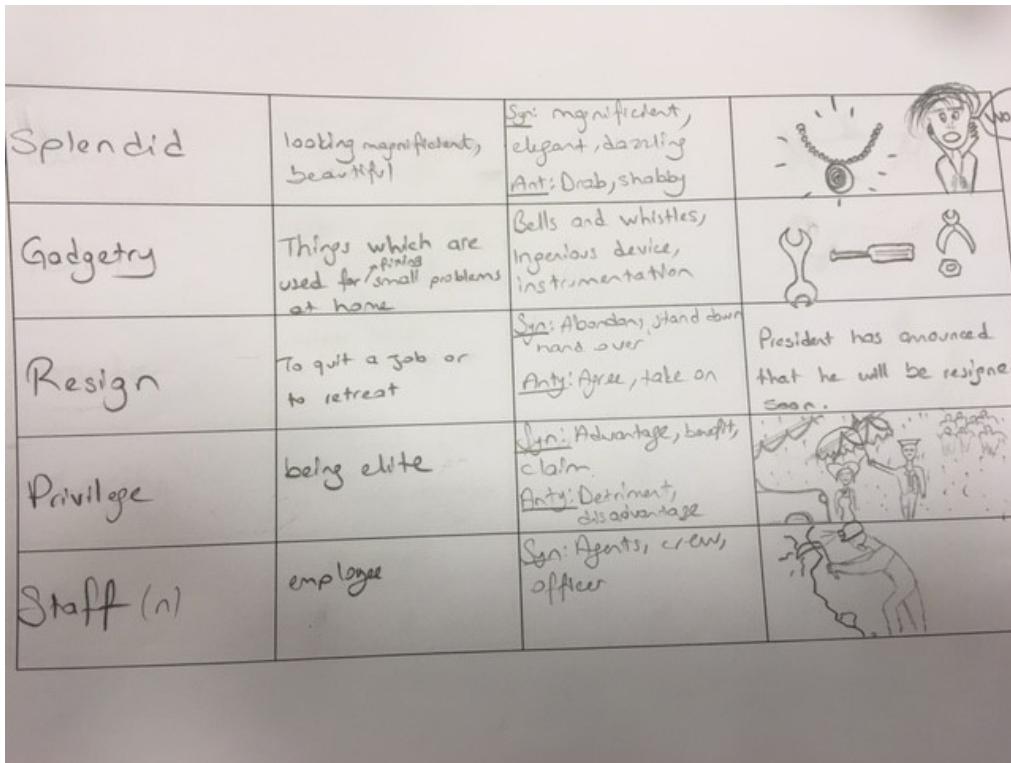 Splendid
looking magnificient,
beautiful
Syn: magnificient,
elegant, dazzling
Ant: Drab, shabby
Gadgetry
Things which are
used for fixing small problems
at home
Bells and whistles,
Ingenious device,
instrumentation
Resign
To quit a job or
to retreat
Syn: Abandon, stand down
hand over
Anty: Agree, take on
President has anounced
that he will be resigne
soon.
Privilege
being elite
Syn: Advantage, benefit,
claim
Anty: Detriment,
disadvantage
Staff (n)
employee
Syn: Agents, crew,
officer